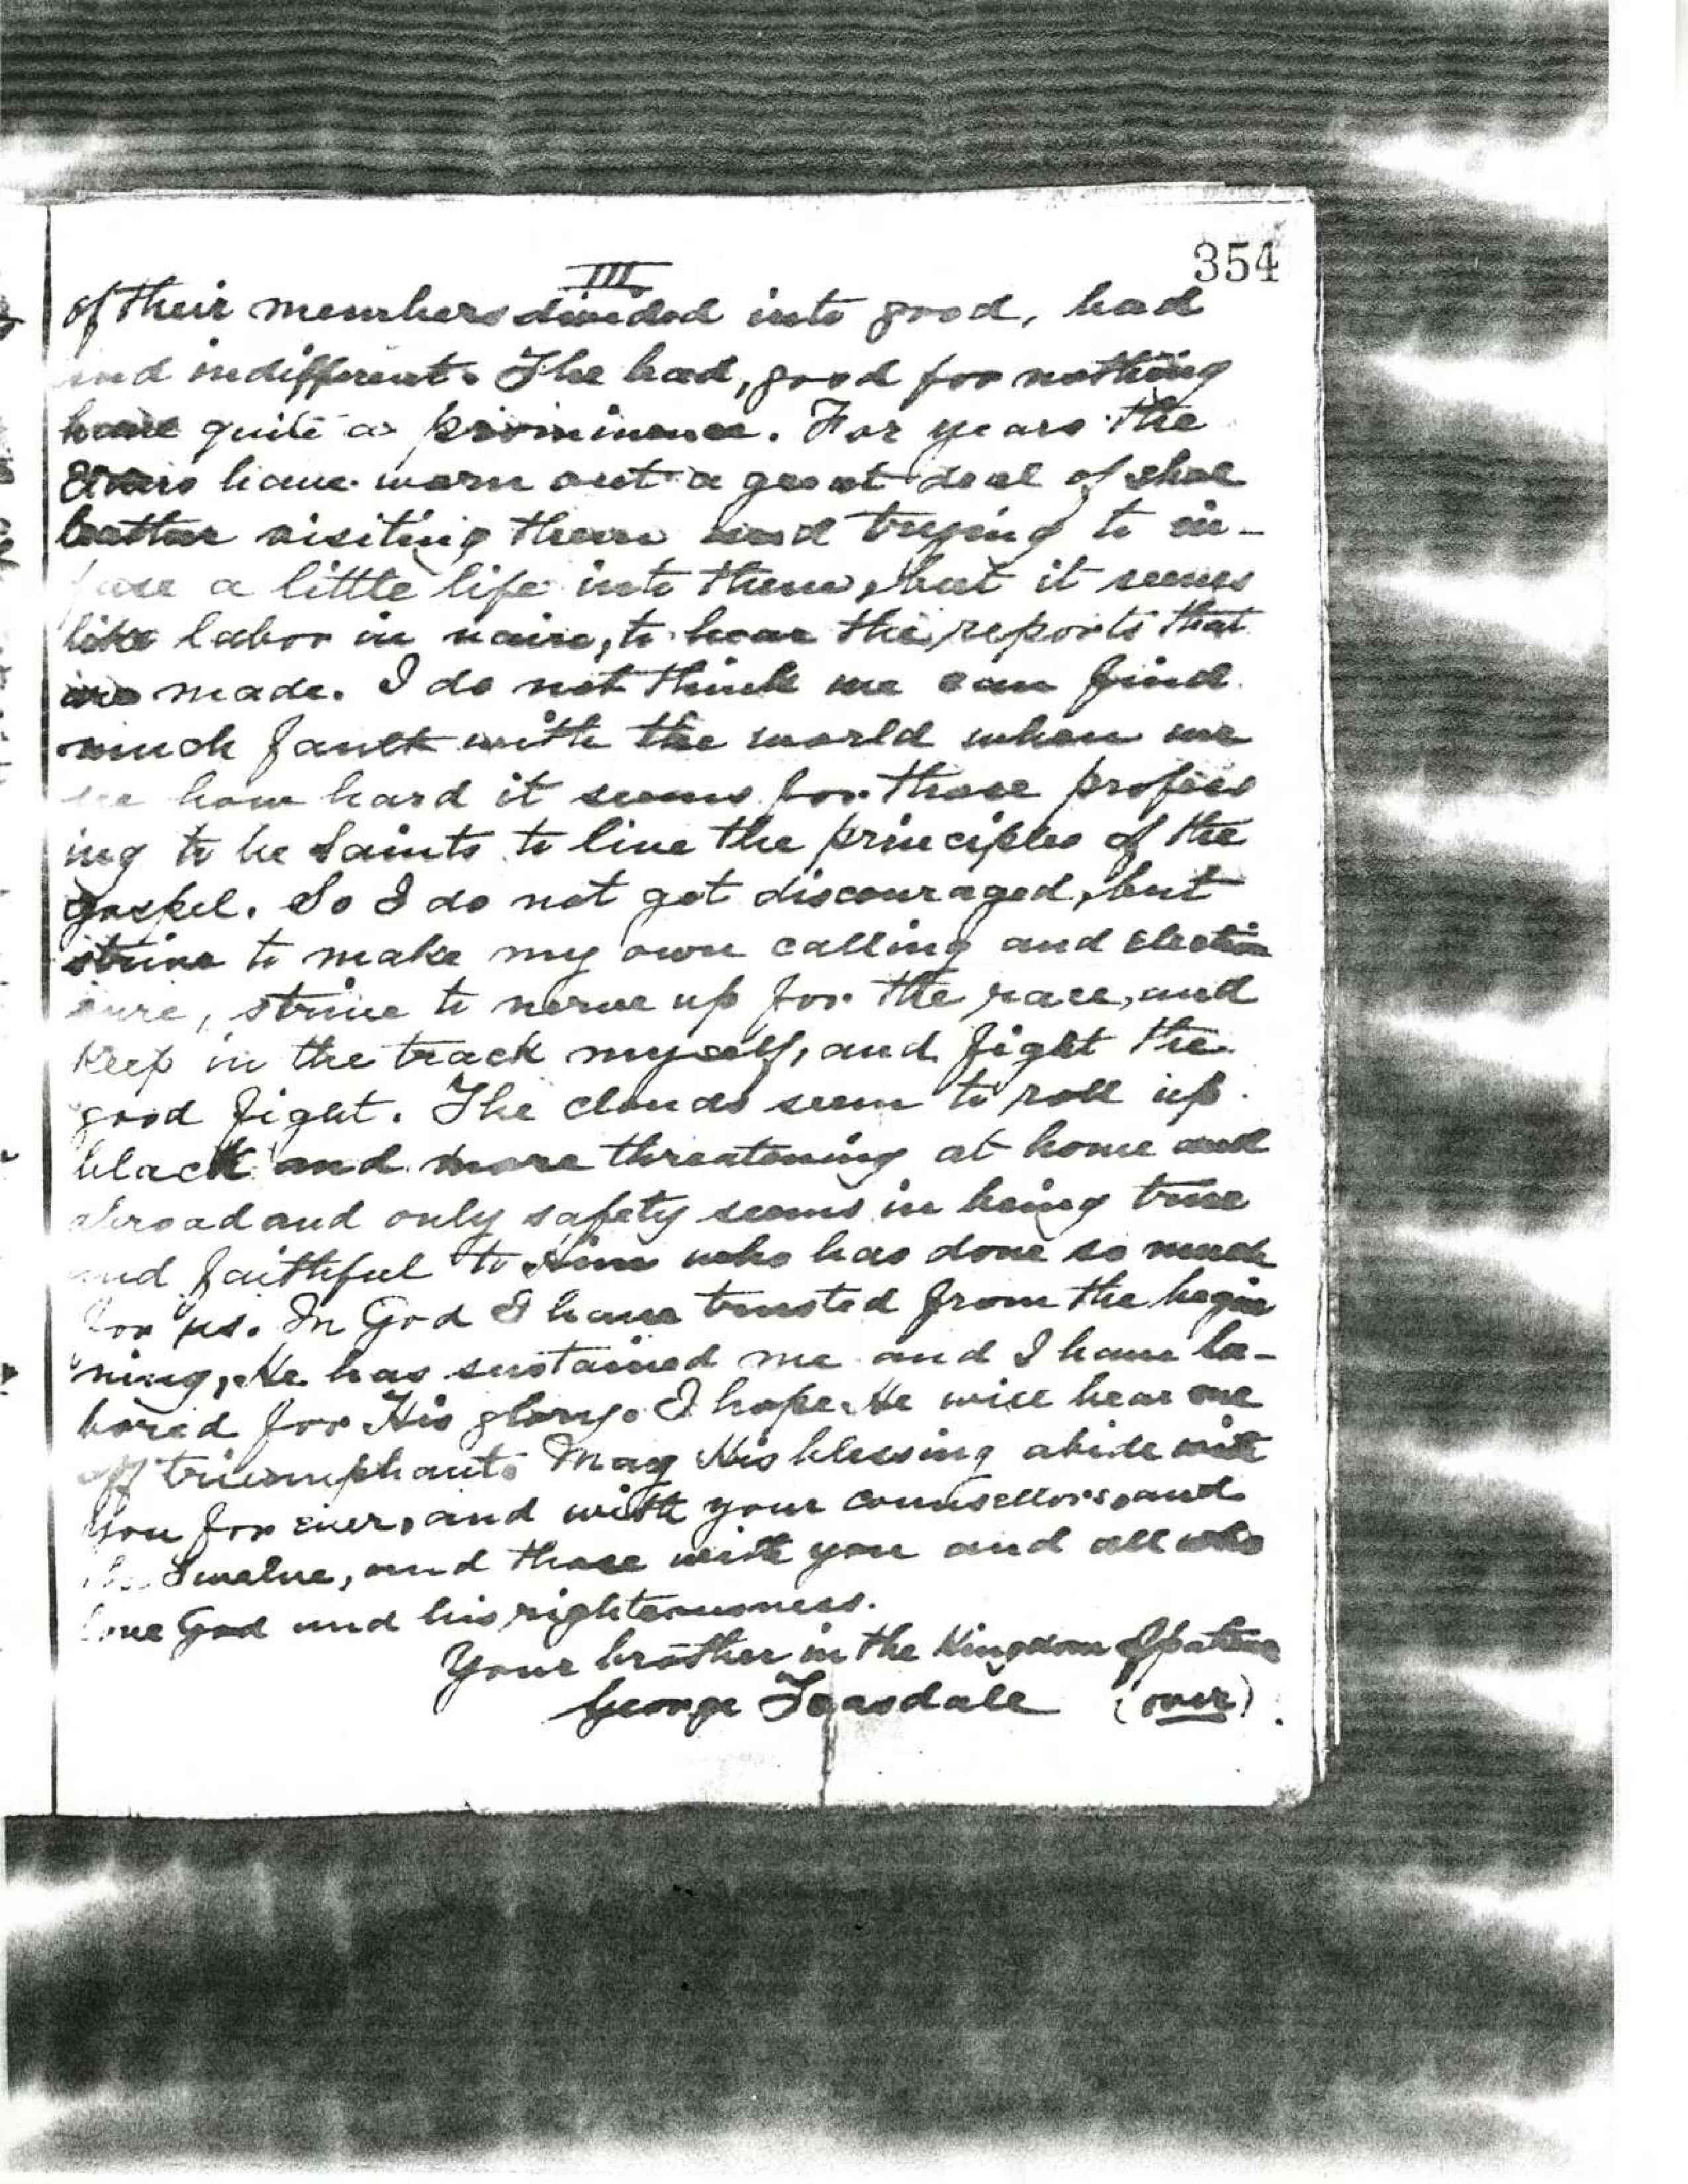 354
III
of their members divided into good, bad
and indifferent. The bad, good for nothing
have quite a prominence. For years the
have worn out a great deal of shoe
leather visiting them and trying to in-
fuse a little life into them, but it seems
like labor in vain, to hear the reports that
are made. I do not think we can find
much fault with the world when we
see how hard it seems for those profess
ing to be Saints to live the principles of the
gospel. So I do not get discouraged, but
strive to make my own calling and election
sure, strive to nerve up for the race, and
keep in the track myself, and fight the
good fight. The clouds seem to roll up
black and more threatening at home and
abroad and only safety seems in being true
and faithful to Him who has done so much
for us. In God I have trusted from the begin
ning, He has sustained me and I have la-
bored for His glory. I hope He will bear me
off triumphant. May His blessing abide with
you for ever, and with your counsellors, and
the Twelve, and those with you and all who
love God and his righteousness.
Your brother in the Kingdom of patience
George Teasdale (over)